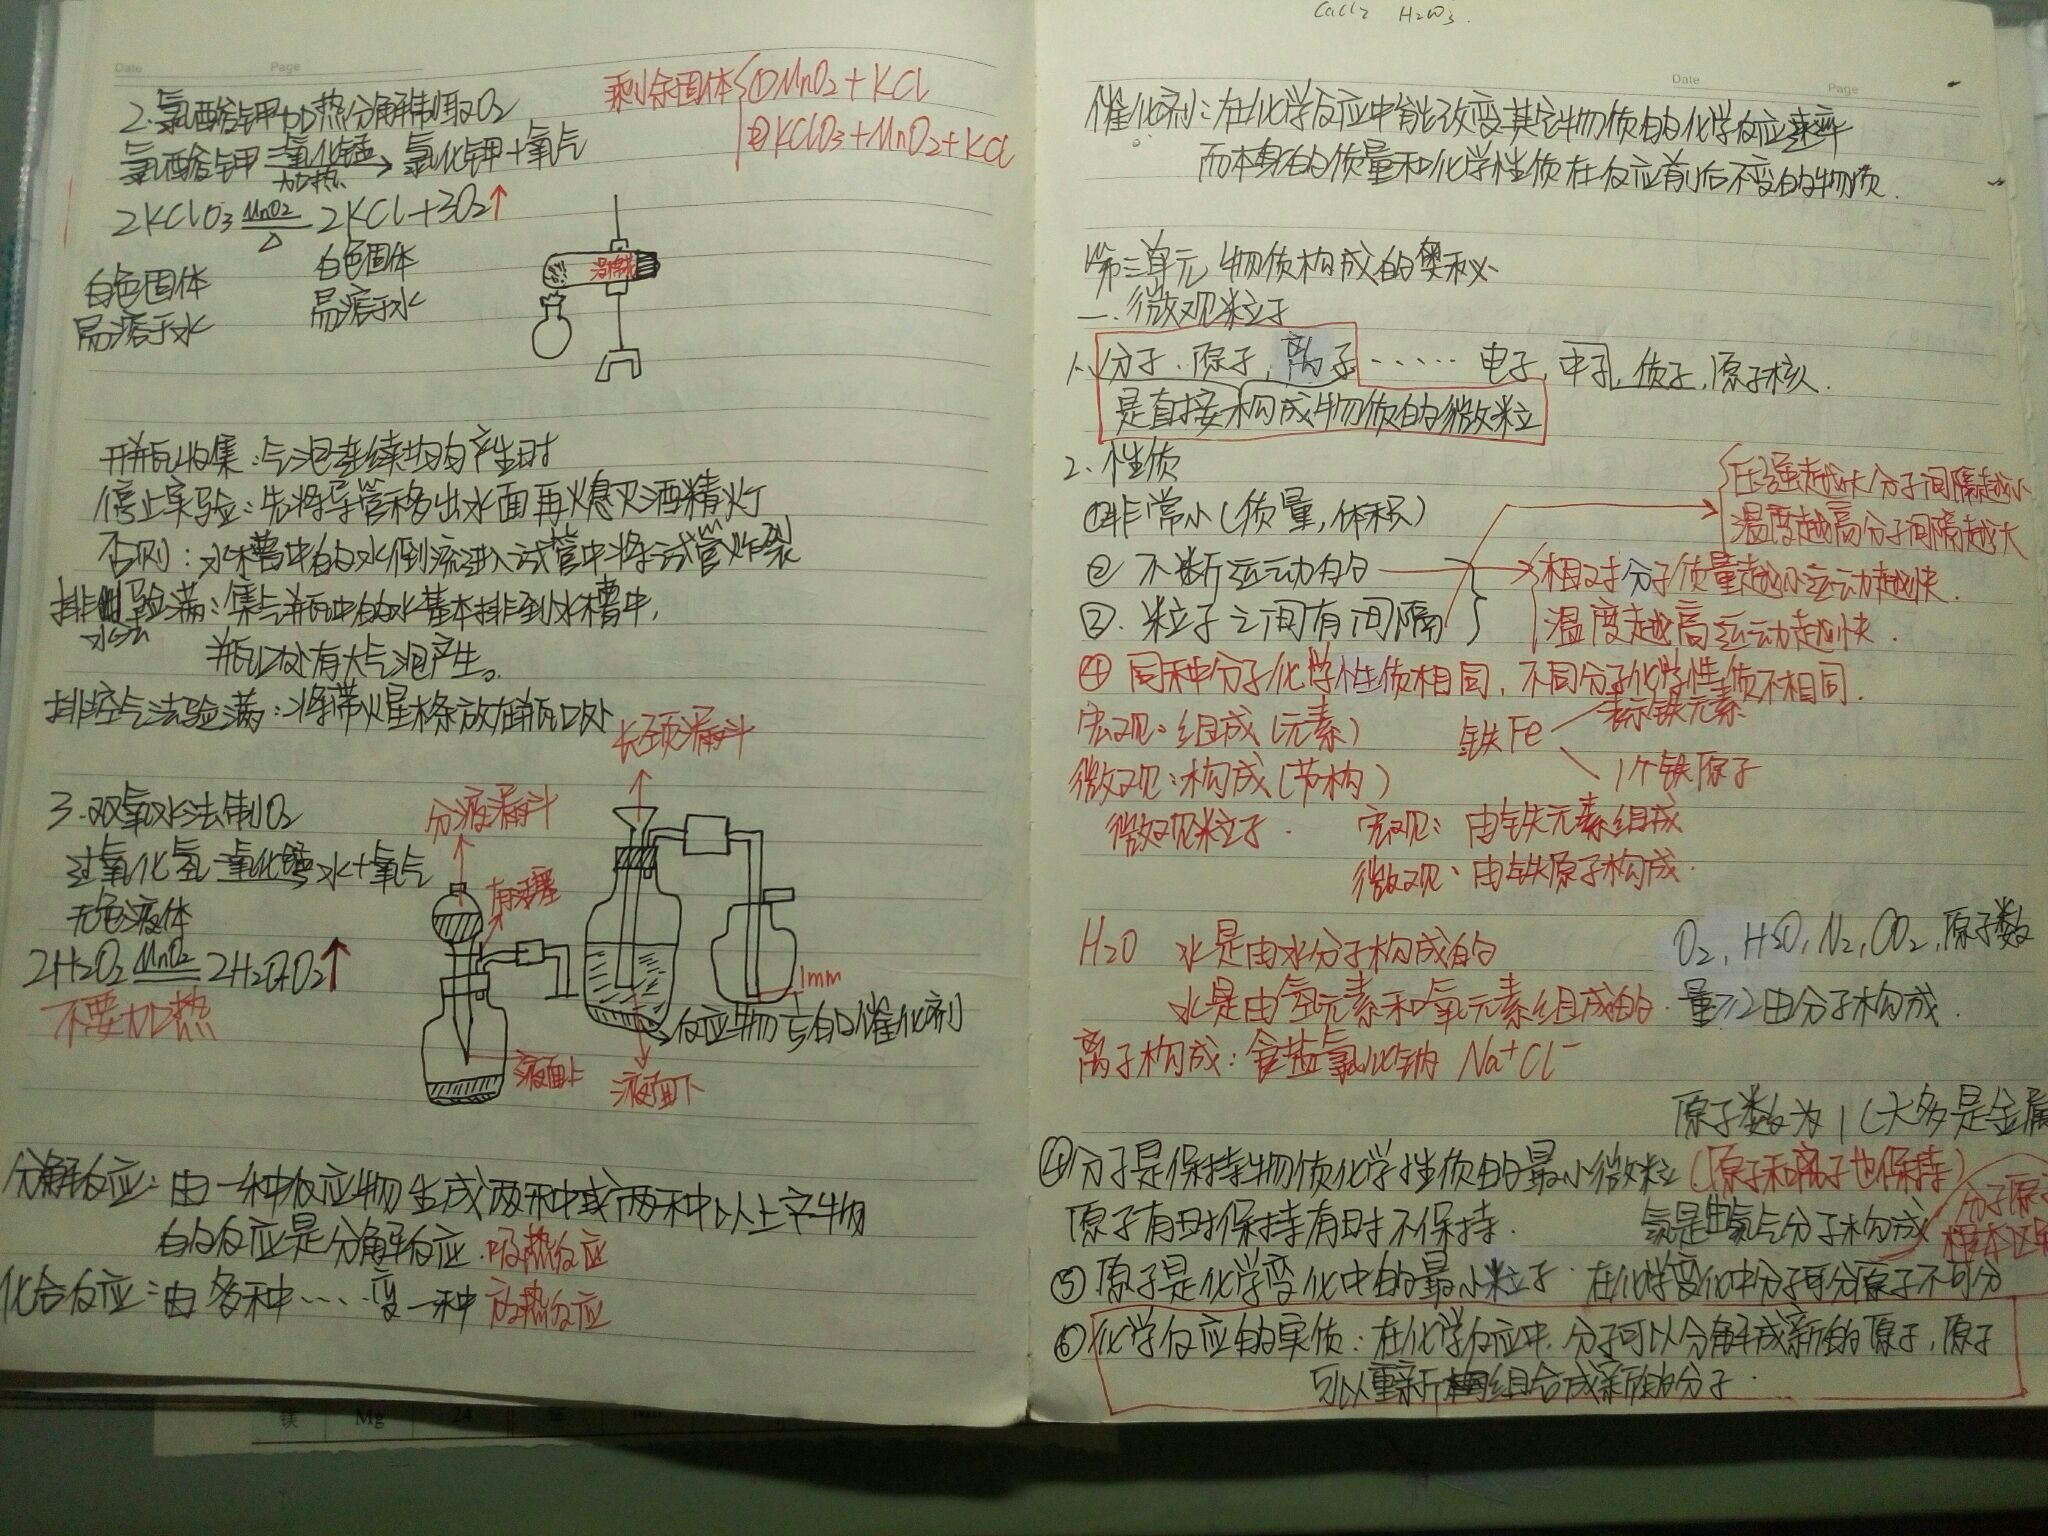 Date Page
2.氯酸钾加热分解制取O2
氯酸钾 二氧化锰 加热 → 氯化钾+氧气
2KClO3 MnO2 △ 2KCl+3O2↑
白色固体 易溶于水
白色固体 易溶于水
剩余固体 ①MnO2+KCl
②KClO3+MnO2+KCl
棉花
开始收集:气泡连续均匀产生时
停止实验:先将导管移出水面再熄灭酒精灯
否则:水槽中的水倒流进入试管中将试管炸裂
排水法验满:集气瓶中的水基本排到水槽中,
瓶口处有大气泡产生。
排空气法验满:将带火星木条放在瓶口处
3.双氧水法制O2
过氧化氢 二氧化锰 水+氧气
无色液体
2H2O2 MnO2 2H2O+O2↑
不要加热
分液漏斗
长颈漏斗
有活塞
1mm
液面上
液面下
反应物与催化剂
分解反应:由一种反应物生成两种或两种以上产物
的反应是分解反应.吸热反应
化合反应:由多种‥‥变一种 放热反应
镁 Mg 24
CaCl2 H2CO3.
Date Page
催化剂:在化学反应中能改变其它物质的化学反应速率
而本身的质量和化学性质在反应前后不变的物质.
第三单元 物质构成的奥秘
一.微观粒子
1、分子、原子,离子‥‥‥电子,中子,质子,原子核.
是直接构成物质的微粒
2、性质
①非常小(质量,体积)
② 不断运动的
③.粒子之间有间隔
压强越大分子间隔越小
温度越高分子间隔越大
相对分子质量越小运动越快.
温度越高运动越快.
④同种分子化学性质相同,不同分子化学性质不相同.
宏观:组成(元素)
微观:构成(节构)
微观粒子.
铁Fe 表示铁元素
1个铁原子
宏观:由铁元素组成
微观:由铁原子构成.
H2O 水是由水分子构成的
水是由氢元素和氧元素组成的.
O2,H2O,N2,CO2,原子数
量≥2由分子构成.
离子构成:食盐氯化钠 Na+Cl-
原子数为1(大多是金属
④分子是保持物质化学性质的最小微粒(原子和离子也保持)
原子有时保持有时不保持.
氧是由氧气分子构成
分子原子
根本区别
⑤原子是化学变化中的最小粒子.在化学变化中分子可分原子不可分
⑥化学反应的实质:在化学反应中.分子可以分解成新的原子,原子
可以重新组合成新的分子.